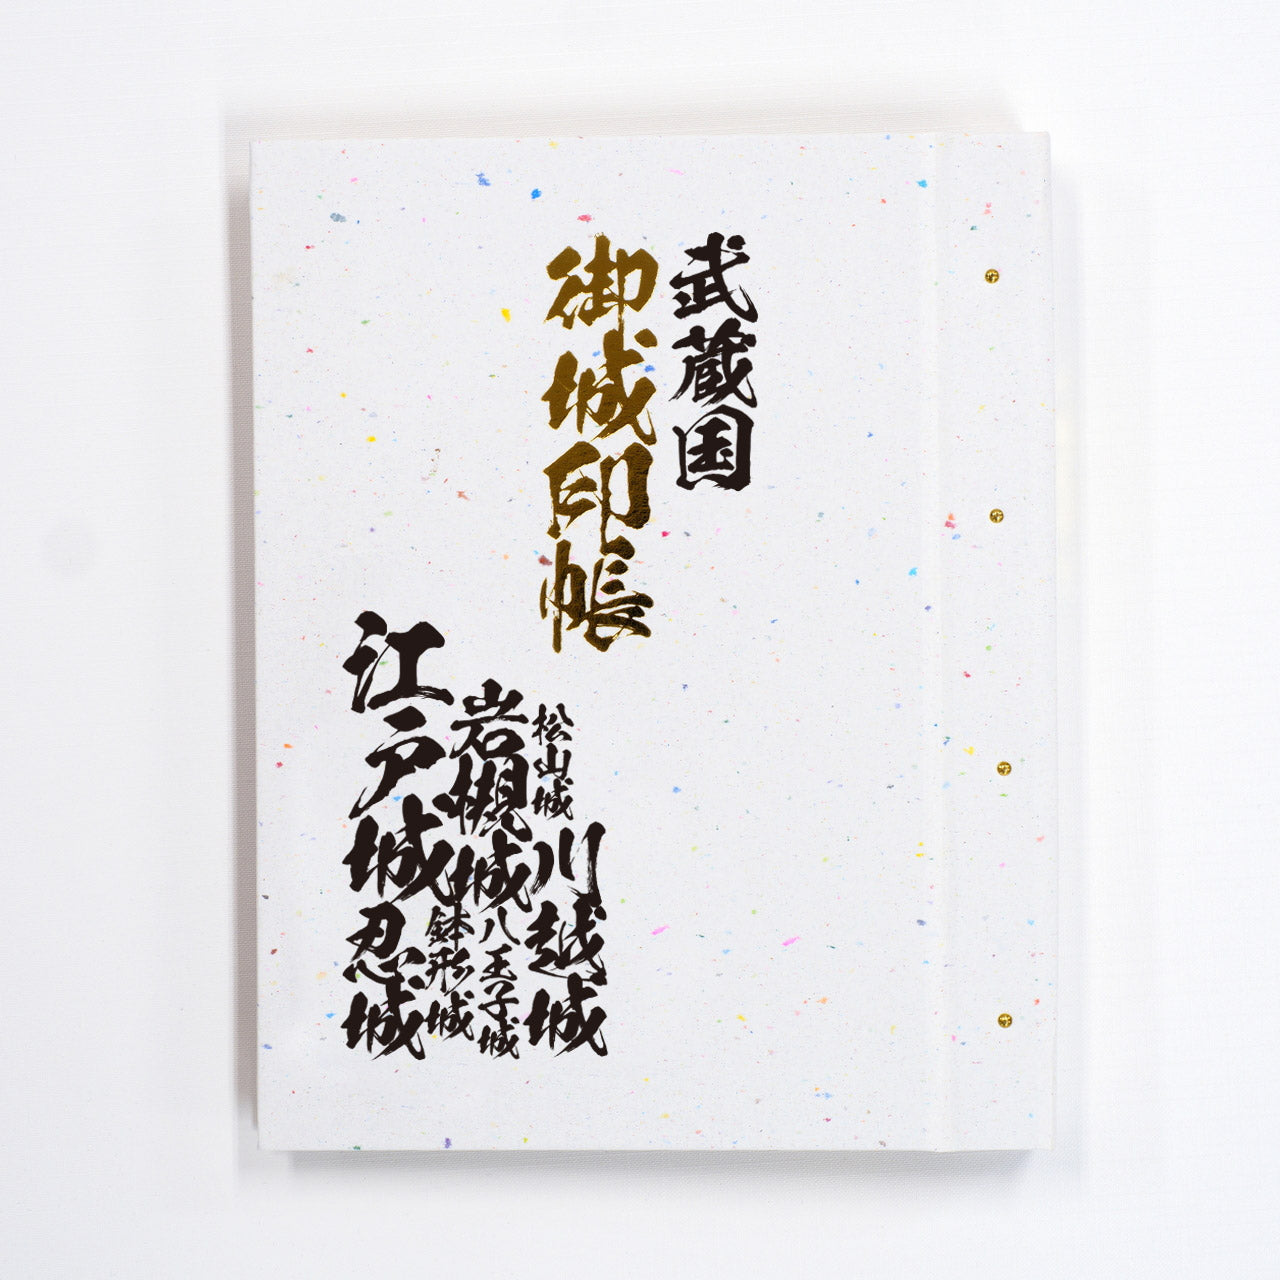 武蔵国
御城印帳
松山城
川越城
岩槻城
八王子城
鉢形城
江戸城
忍城